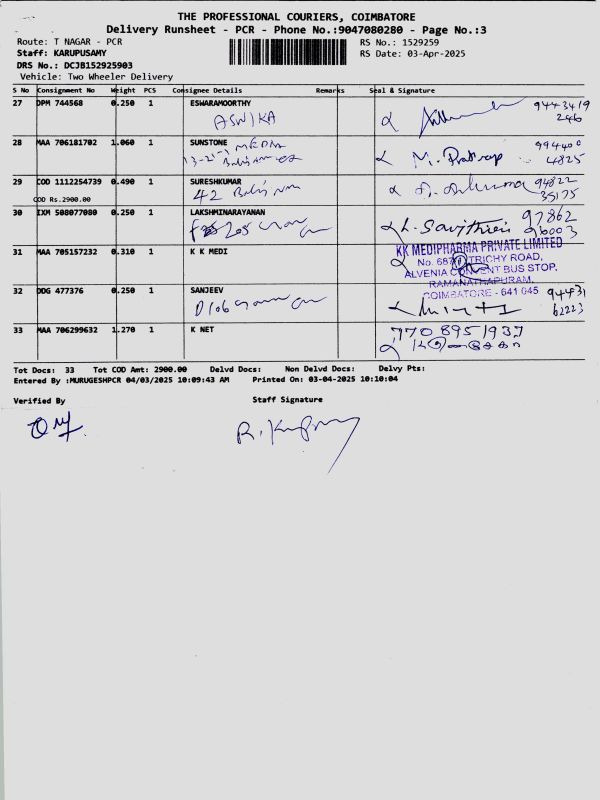 THE PROFESSIONAL COURIERS, COIMBATORE
Delivery Runsheet - PCR - Phone No.:9047080280 - Page No.:3
Route: T NAGAR - PCR
RS No.: 1529259
Staff: KARUPUSAMY
RS Date: 03-Apr-2025
DRS No.: DCJB152925903
Vehicle: Two Wheeler Delivery
S No Consignment No Weight PCS Consignee Details Remarks Seal & Signature
27 DPM 744568 0.250 1 ESWARAMOORTHY
ASWIKA
9443419
246
28 MAA 706181702 1.060 1 SUNSTONE
MEDIA
M. Prathap
994400
4825
29 COD 1112254739 0.490 1 SURESHKUMAR
COD Rs.2900.00
42
94822
35175
30 IXM 508077080 0.250 1 LAKSHMINARAYANAN
205
L. Savithiri
97862
96003
31 MAA 705157232 0.310 1 K K MEDI
KK MEDIPHARMA PRIVATE LIMITED
TRICHY ROAD,
ALVENIA CONVENT BUS STOP.
RAMANATHAPURAM,
COIMBATORE - 641 045
32 DDG 477376 0.250 1 SANJEEV
D106
94431
62223
33 MAA 706299632 1.270 1 K NET
770 895 1937
Tot Docs: 33 Tot COD Amt: 2900.00 Delvd Docs: Non Delvd Docs: Delvy Pts:
Entered By :MURUGESHPCR 04/03/2025 10:09:43 AM Printed On: 03-04-2025 10:10:04
Verified By Staff Signature